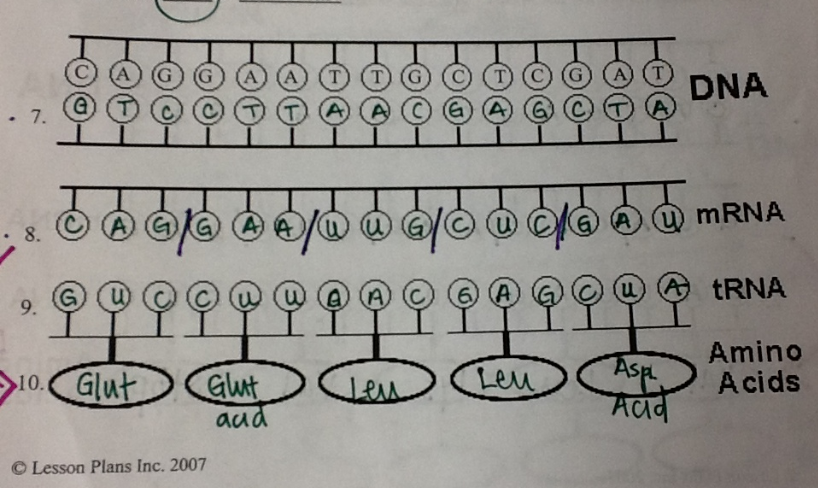 C A G G A A T T G C T C G A T DNA
7. G T C C T T A A C G A G C T A
8. C A G / G A A / U U G / C U C / G A U mRNA
9. G U C C U U A A C G A G C U A tRNA
10. Glut Glut acid Leu Leu Asp Acid Amino Acids
© Lesson Plans Inc. 2007